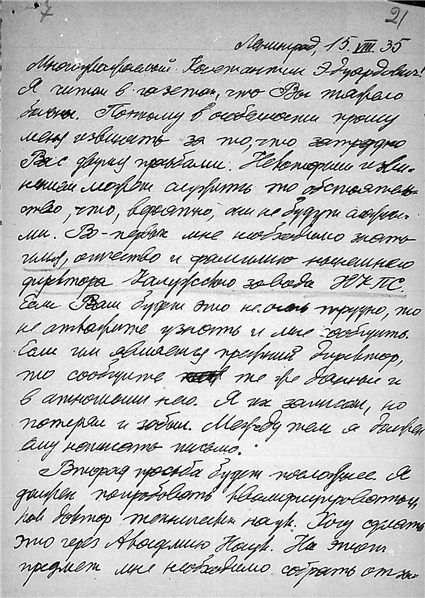 21
Ленинград, 15.VIII.35
Многоуважаемый Константин Эдуардович!
Я читал в газетах, что Вы тяжело
больны. Поэтому в особенности прошу
меня извинить за то, что затрудняю
Вас двумя просьбами. Некоторым изви-
нением может служить то обстоятель-
ство, что, вероятно, они не будут
ми. Во-первых мне необходимо знать
имя, отчество и фамилию нынешнего
директора Калужского завода НКПС.
Если Вам будет это не очень трудно, то
не откажите узнать и мне сообщить.
Если им является прежний директор,
то сообщите те же данные и
в отношении него. Я их записал, но
потерял и забыл. Между тем я должен
ему написать письмо.
Вторая просьба будет посложнее. Я
должен попробовать квалифицироваться
как доктор технических наук. Хочу сделать
это через Академию Наук. На этот
предмет мне необходимо собрать отзы-